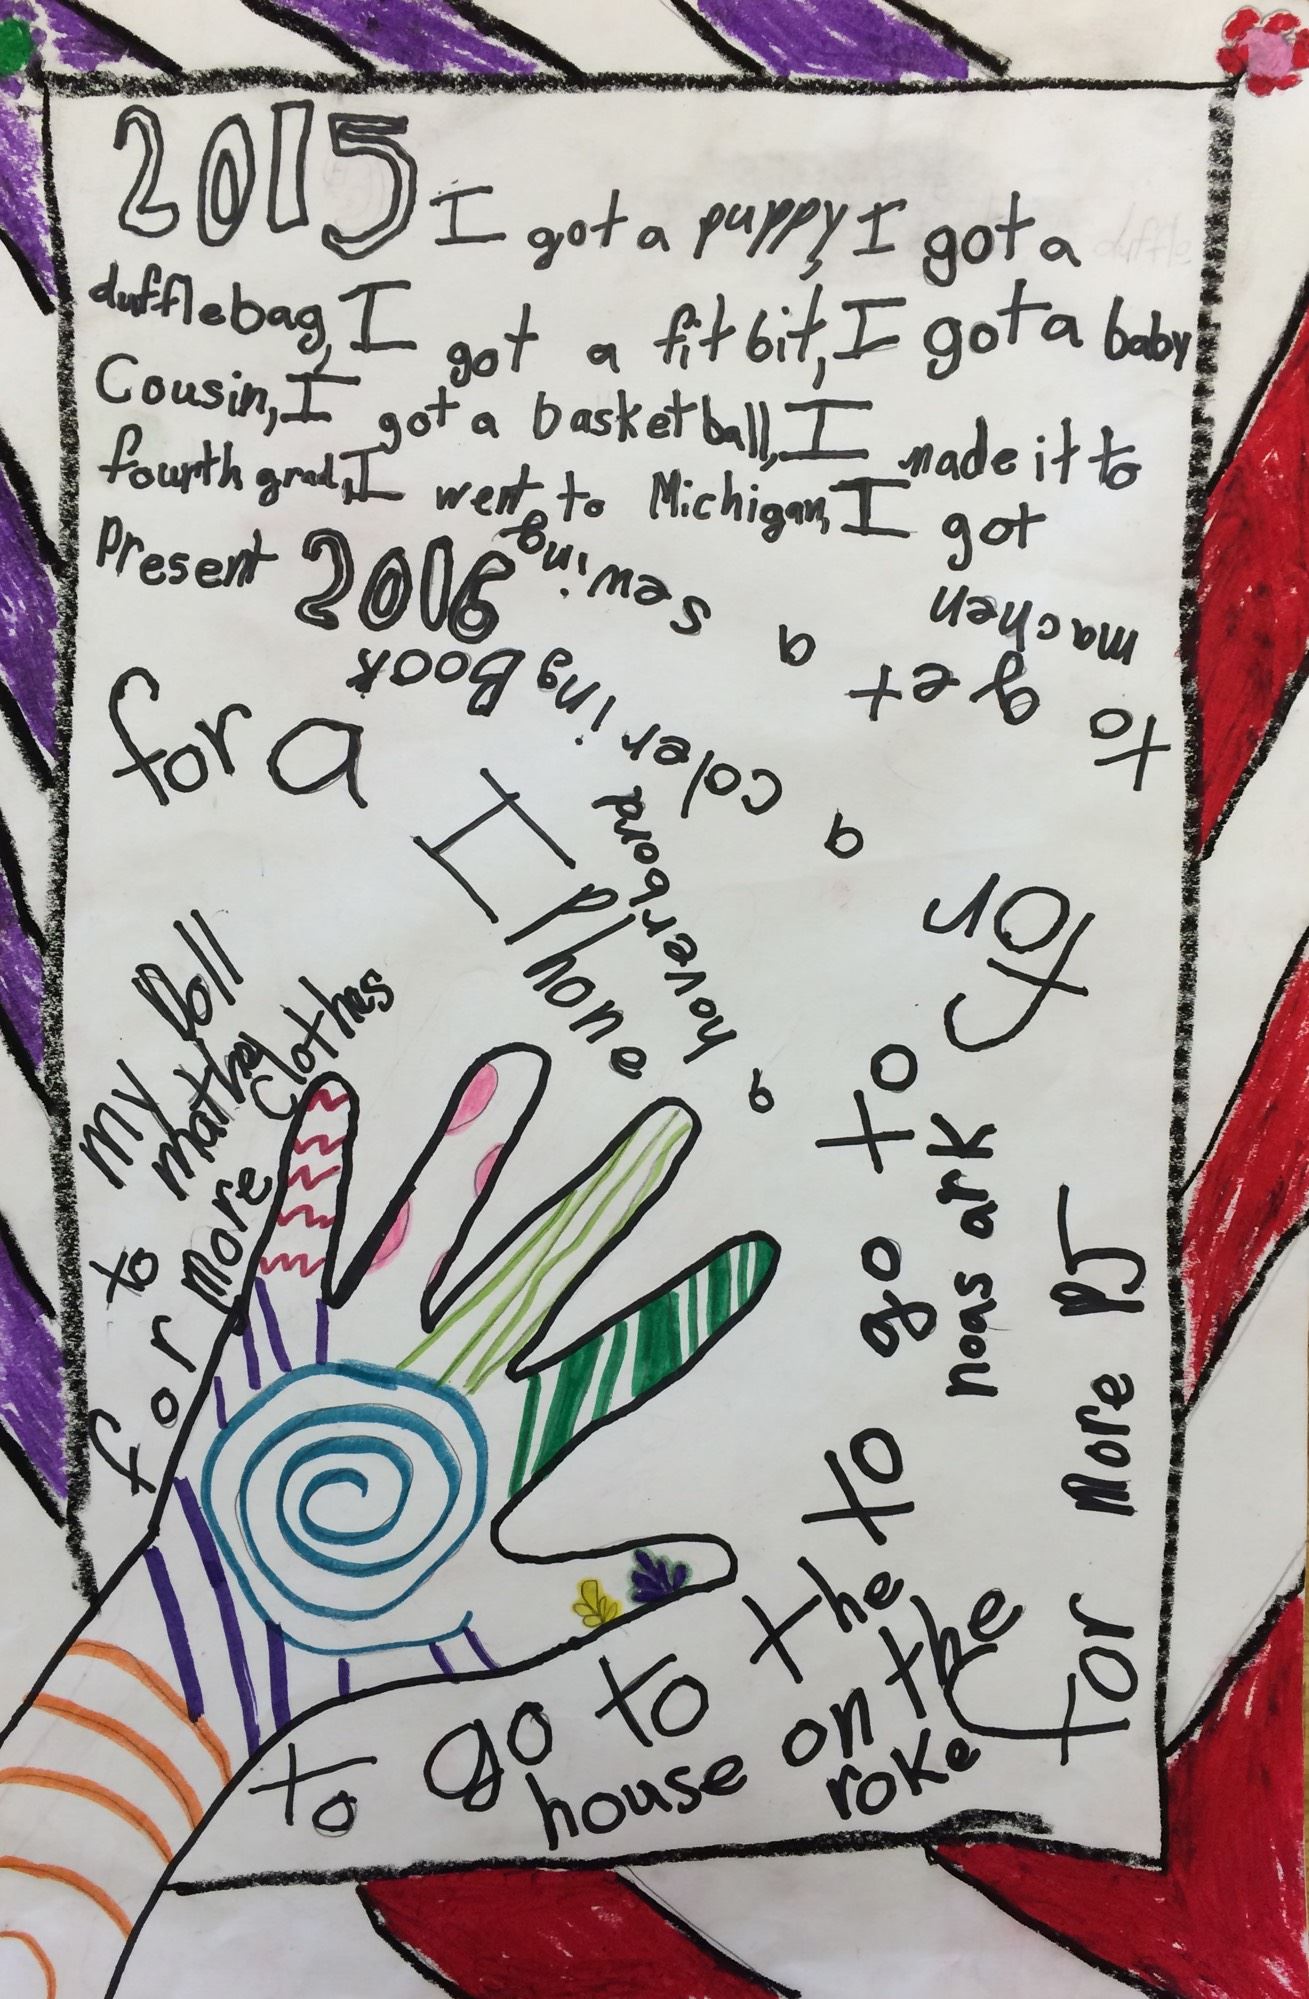 2015 I got a puppy, I got a
dufflebag, I got a fitbit, I got a baby
Cousin, I got a basketball, I made it to
fourth grad, I went to Michigan, I got
Present 2016
I Hope
for a
hoverbord
a
colering Book
a
sewing
machen
to get a
for
my Doll
to mathe
for more Clothes
to go to
noas ark
for more PJ
to go to the
house on the
roke